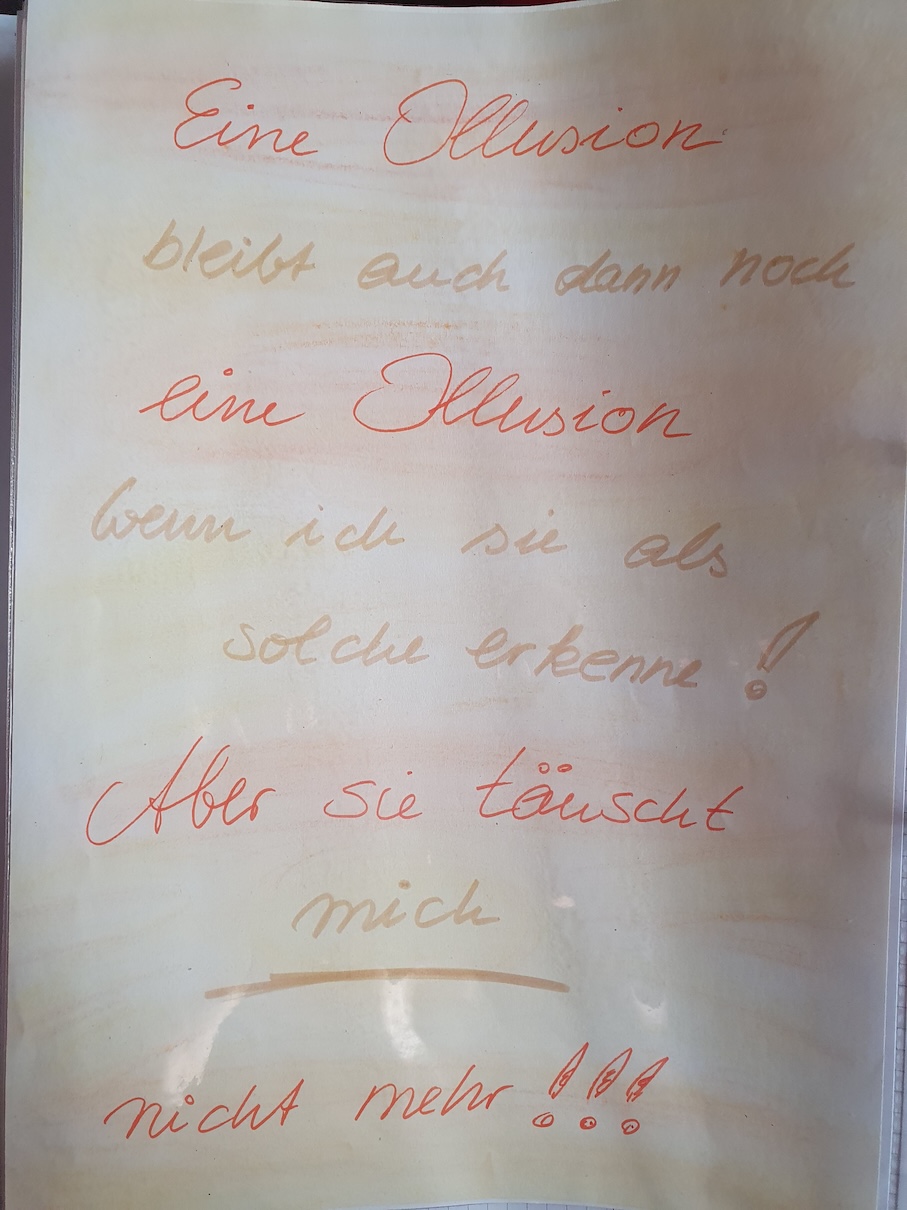 Eine Illusion
bleibt auch dann noch
eine Illusion
wenn ich sie als
solche erkenne!
Aber sie täuscht
mich
nicht mehr!!!